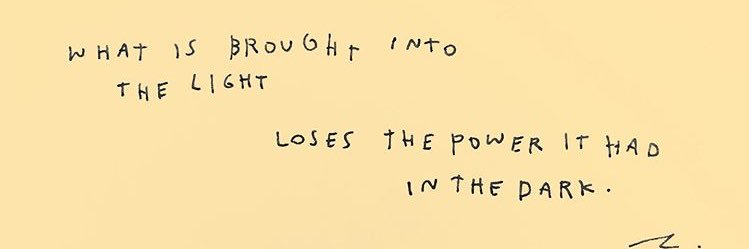 WHAT IS BROUGHT INTO
THE LIGHT
LOSES THE POWER IT HAD
IN THE DARK.